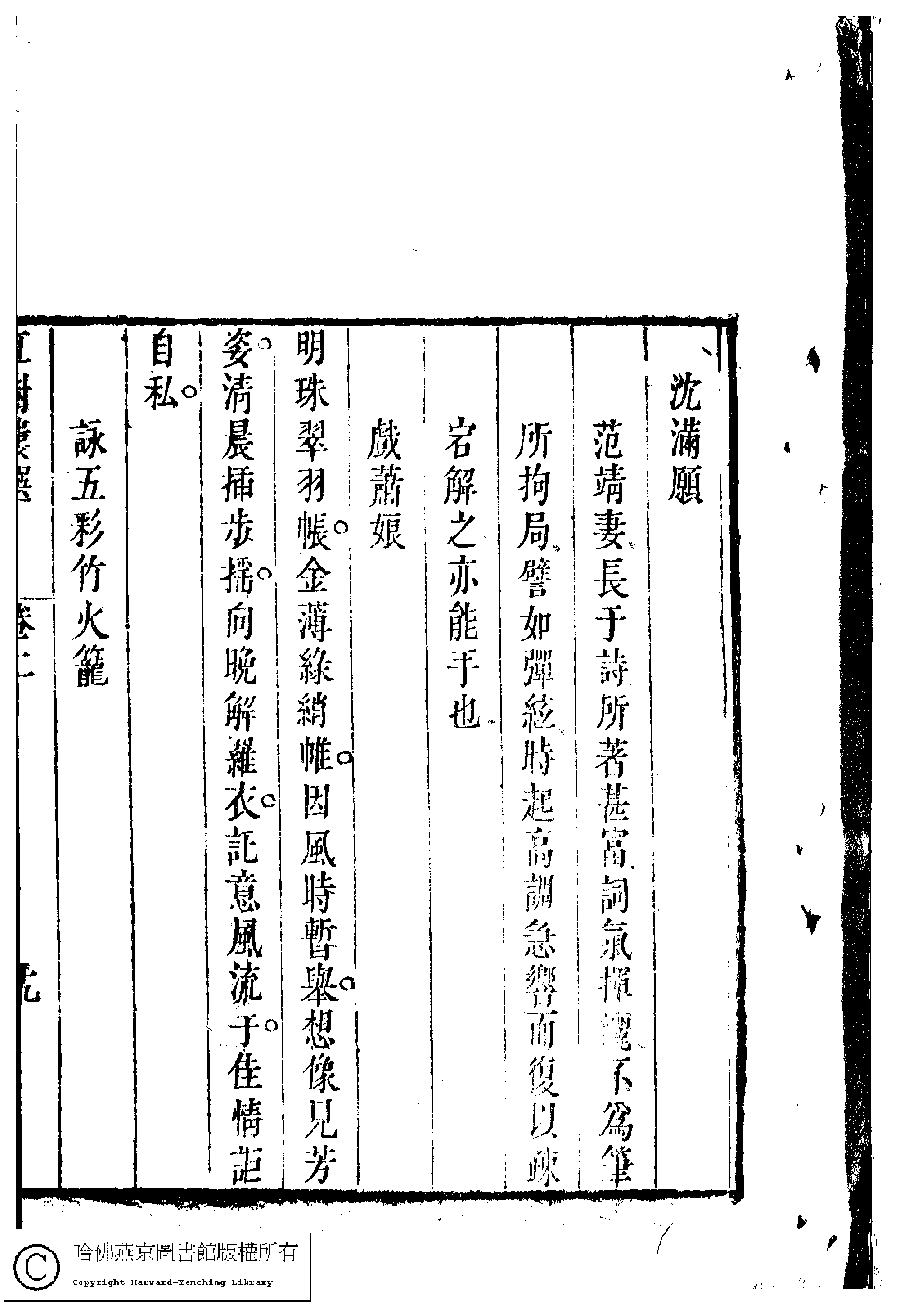 沈滿願
范靖妻長于詩所著甚富詞氣揮 不爲筆
所拘局譬如彈絃時起高調急響而復以疎
宕解之亦能手也
戲蕭娘
明珠翠羽帳。金薄綠綃帷。因風時暫舉。想像見芳
姿。清晨插步搖。向晚解羅衣。託意風流子。佳情詎
自私。
詠五彩竹火籠
卷二
哈佛燕京圖書館版權所有
Copyright Harvard-Yenching Library